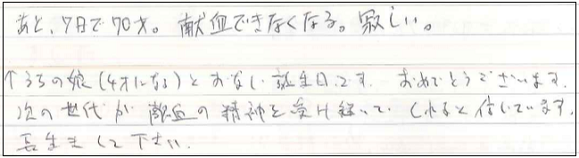 あと、7日で70才。献血できなくなる。寂しい。
↑うちの娘(4才になる)とおなじ誕生日です。おめでとうございます。
次の世代が献血の精神を受け継いでくれると信じています。
長生きして下さい。